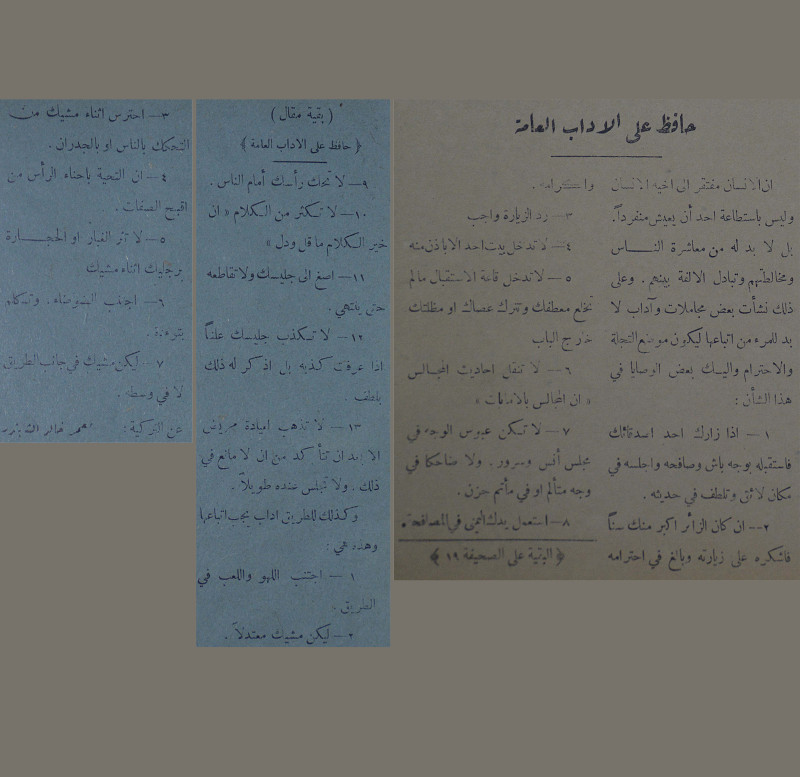 حافظ على الاداب العامة
ان الانسان مفتقر الى اخيه الانسان
وليس باستطاعة احد أن يعيش منفرداً.
بل لا بد له من معاشرة النـــاس
ومخالطتهم وتبادل الالفة بينهم. وعلى
ذلك نشأت بعض مجاملات وآداب لا
بد للمرء من اتباعها ليكون موضع التجلة
والاحترام واليـك بعض الوصايا في
هذا الشأن :
١ — اذا زارك احد اصدقائك
فاستقبله بوجه باش وصافحه واجلسه في
مكان لائق وتلطف في حديثه .
٢ -- ان كان الزائر اكبر منك سناً
فاشكره على زيارته وبالغ في احترامه
واكرامه .
٣ — رد الزيارة واجب
٤ — لا تدخل بيت احد الا باذن منه
٥ — لا تدخل قاعة الاستقبال مالم
تخلع معطفك وتترك عصاك او مظلتك
خارج الباب
٦ — لا تنقل احاديث المجالس
« ان المجالس بالامانات »
٧ — لا تـكن عبوس الوجه في
مجلس أنس وسرور . ولا ضاحكا في
وجه متألم او في مأتم حزن .
٨ — استعمل يدك اليمنى في المصافحة.
﴿ البقية على الصحيفة ١٩ ﴾
( بقية مقال )
﴿ حافظ على الاداب العامة ﴾
٩ — لا تحك برأسـك أمام الناس .
١٠ — لا تـكثر من الـكلام « ان
خير الـكلام ما قل ودل »
١١ — اصغ الى جليسـك ولا تقاطعه
حتى ينتهي .
١٢ — لا تـكذب جليسـك علناً
اذا عرفت كذبه بل اذكر له ذلك
بلطف .
١٣ — لا تذهب لعيادة مريض
الا بعد ان تتأكد من ان لا مانع في
ذلك . ولا تجلس عنده طويلاً .
وكذلك للطريق اداب يجب اتباعها
وهذه هي :
١ — اجتنب اللهو واللعب في
الطريق .
٢ — ليكن مشيك معتدلاً .
٣ — احترس اثناء مشيك من
التحكك بالناس او بالجدران .
٤ — ان التحية باحناء الرأس من
اقبح الصفات .
٥ — لا تثر الغبار او الحجـــارة
برجليك اثناء مشيك
٦ — اجتنب الضوضاء . وتـكلم
بتؤدة .
٧ — ليكن مشيك في جانب الطريق
لا في وسطه .
عن التركية :